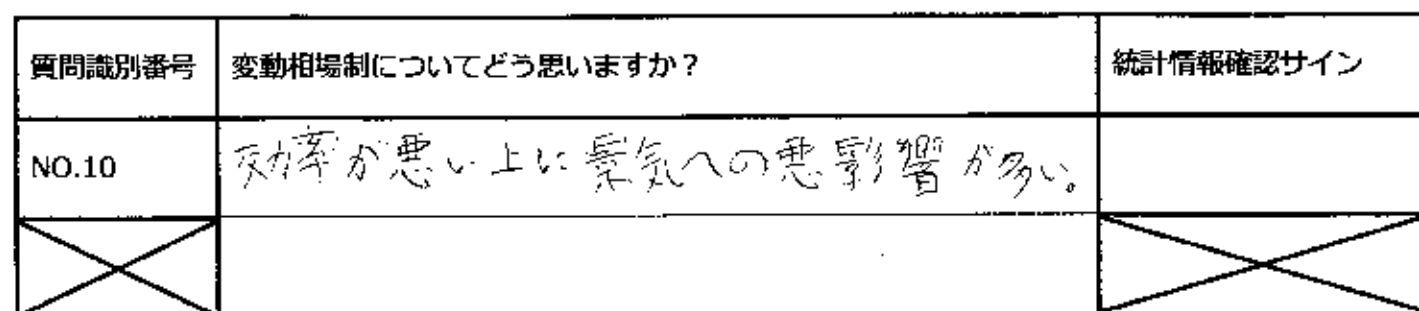 質問識別番号 変動相場制についてどう思いますか? 統計情報確認サイン
NO.10 効率が悪い上に景気への悪影響が多い。